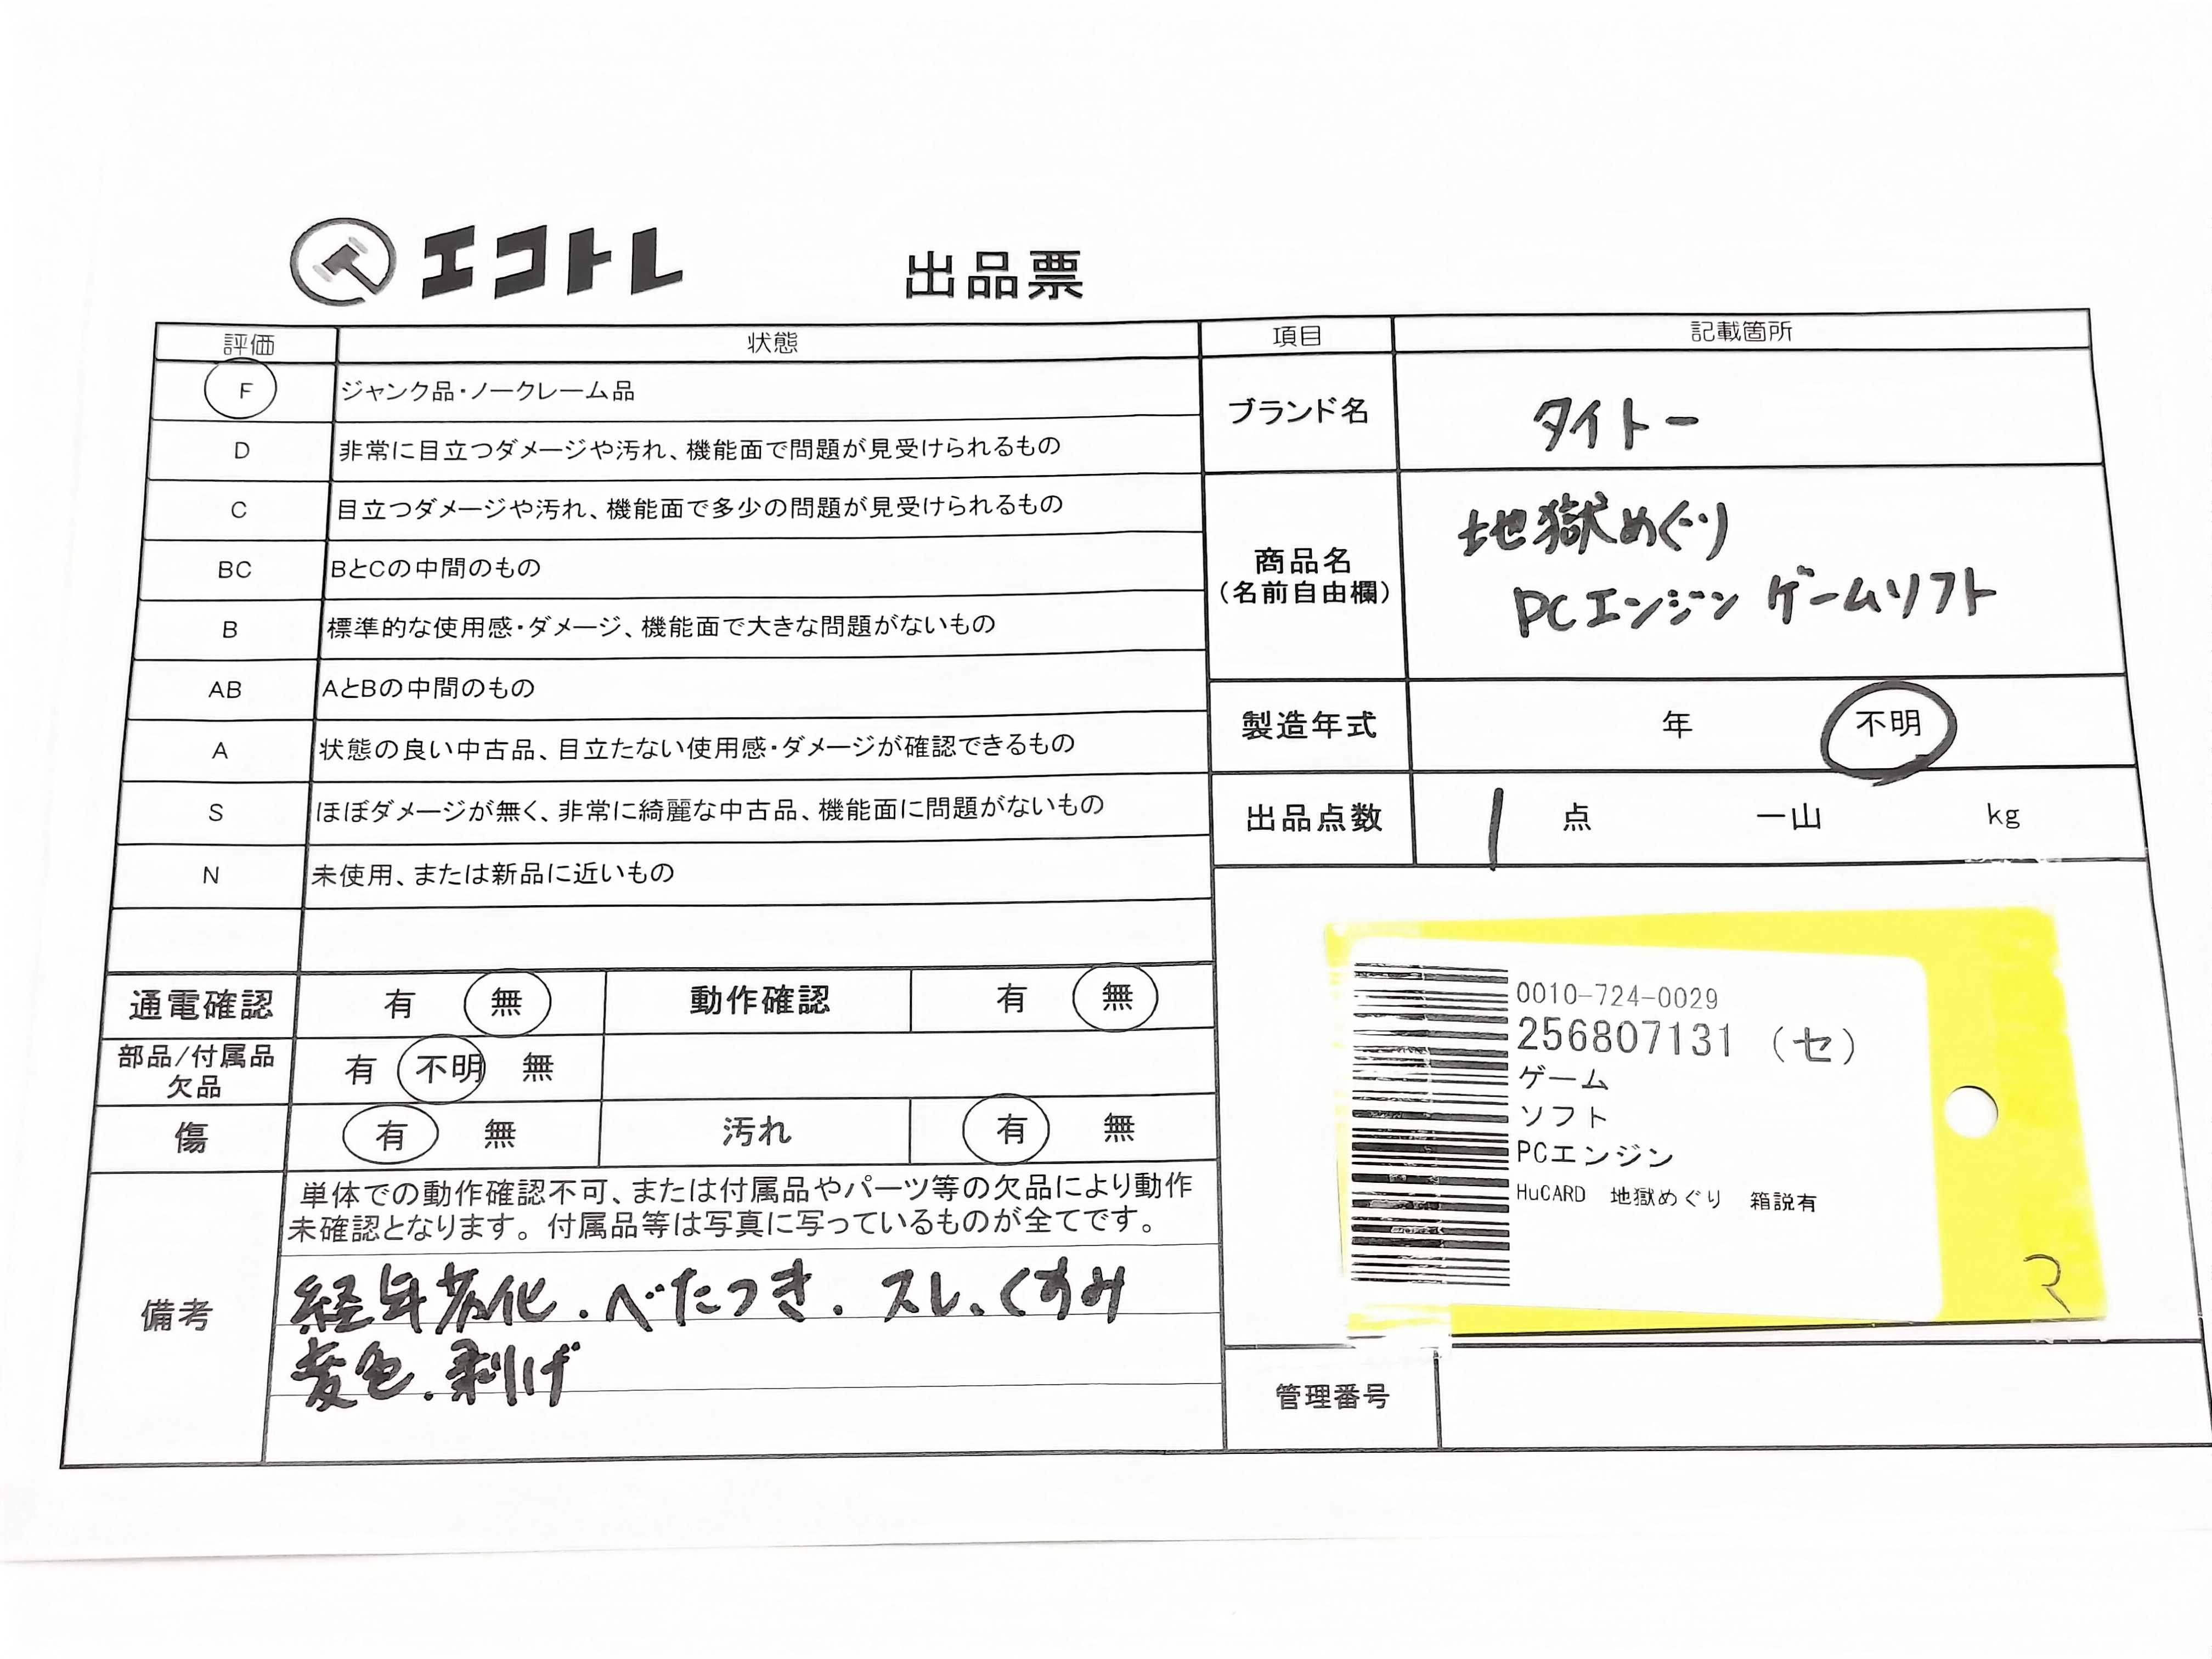 エコトレ
出品票
評価 状態
F ジャンク品・ノークレーム品
D 非常に目立つダメージや汚れ、機能面で問題が見受けられるもの
C 目立つダメージや汚れ、機能面で多少の問題が見受けられるもの
BC BとCの中間のもの
B 標準的な使用感・ダメージ、機能面で大きな問題がないもの
AB AとBの中間のもの
A 状態の良い中古品、目立たない使用感・ダメージが確認できるもの
S ほぼダメージが無く、非常に綺麗な中古品、機能面に問題がないもの
N 未使用、または新品に近いもの
通電確認 有 無 動作確認 有 無
部品/付属品
欠品
有 不明 無
傷 有 無 汚れ 有 無
備考
単体での動作確認不可、または付属品やパーツ等の欠品により動作
未確認となります。付属品等は写真に写っているものが全てです。
経年劣化.べたつき.スレ.くすみ
変色.剥げ
項目 記載箇所
ブランド名 タイトー
商品名
(名前自由欄)
地獄めぐり
PCエンジン ゲームソフト
製造年式 年 不明
出品点数 1 点 一山 kg
0010-724-0029
256807131 (セ)
ゲーム
ソフト
PCエンジン
HuCARD 地獄めぐり 箱説有
管理番号